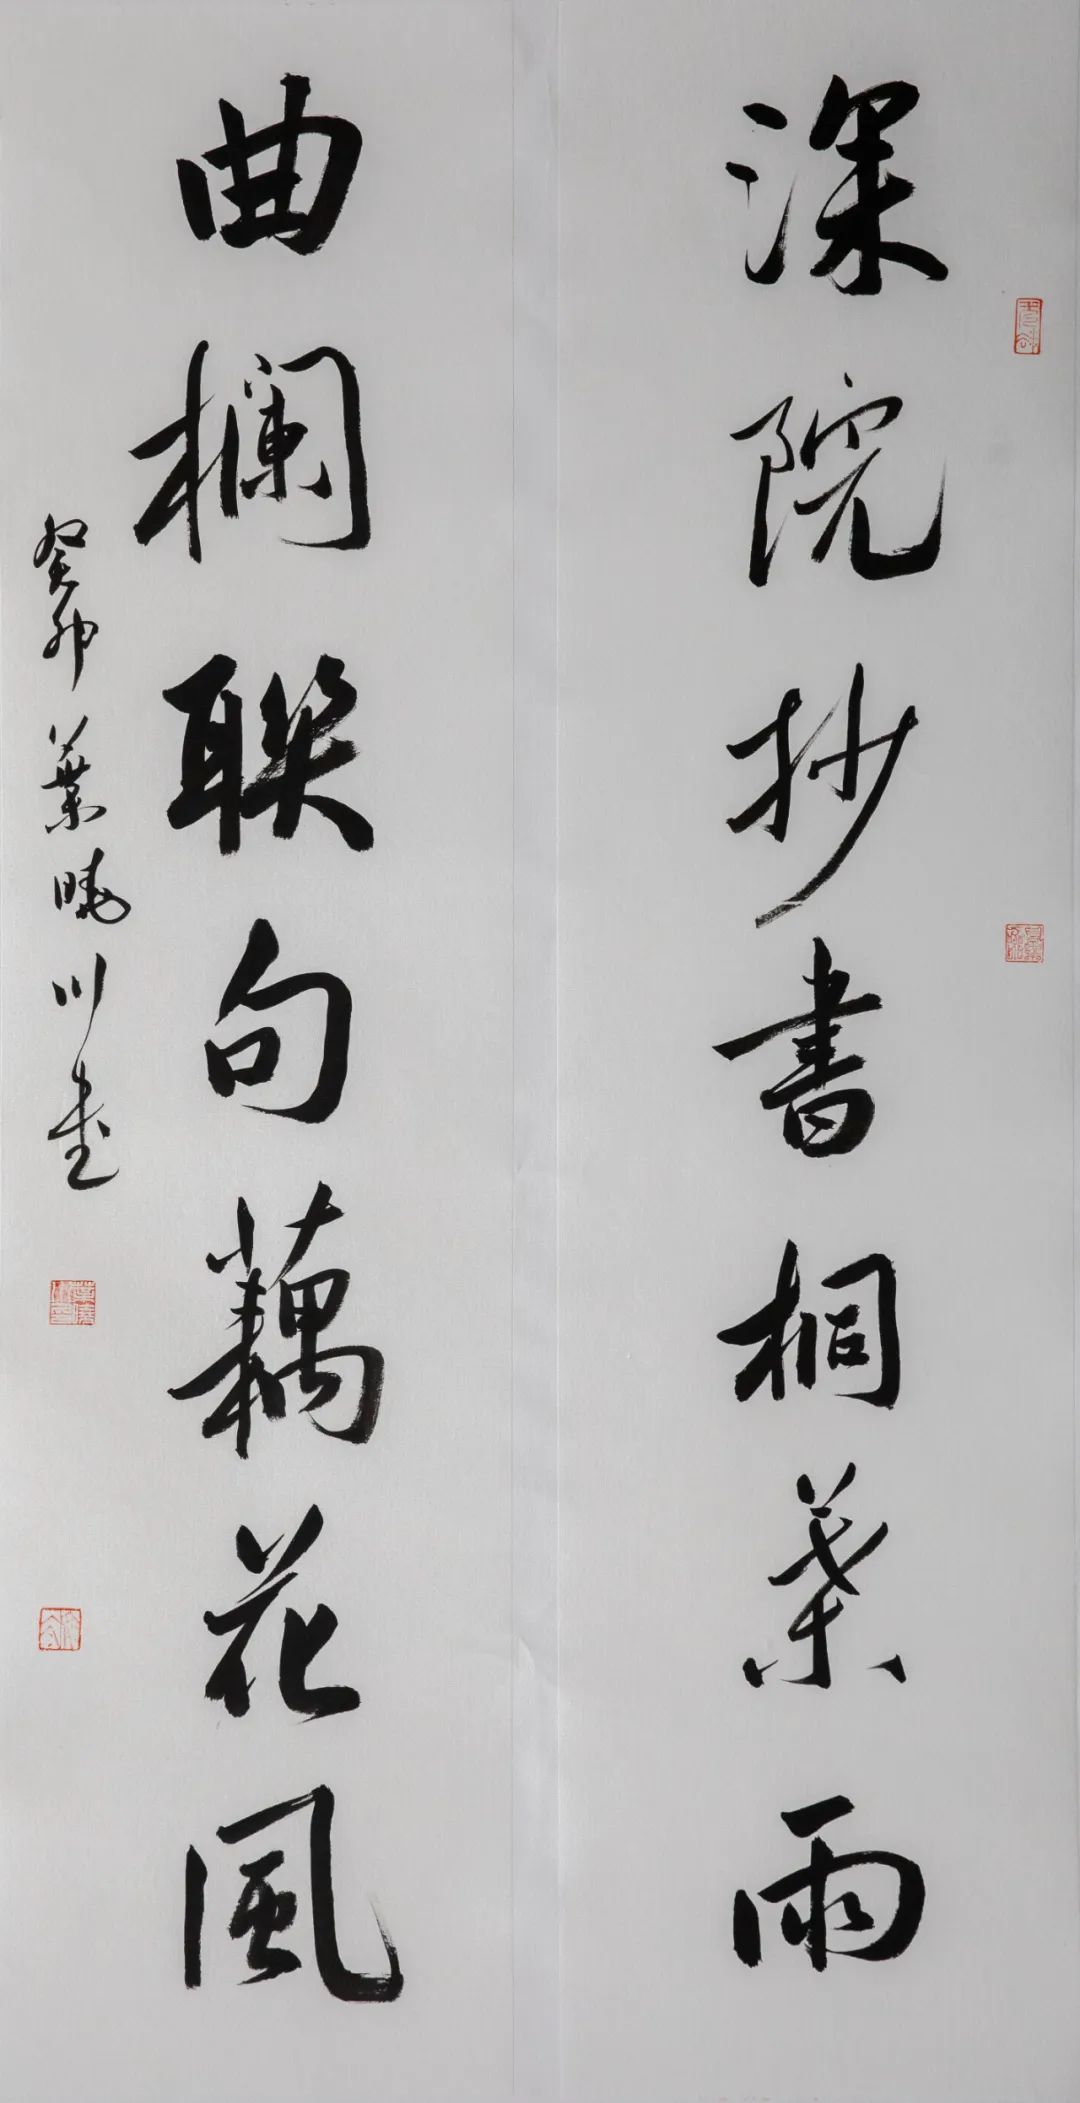 深院抄書桐葉雨
曲欄聯句藕花風
癸卯葉曉川書